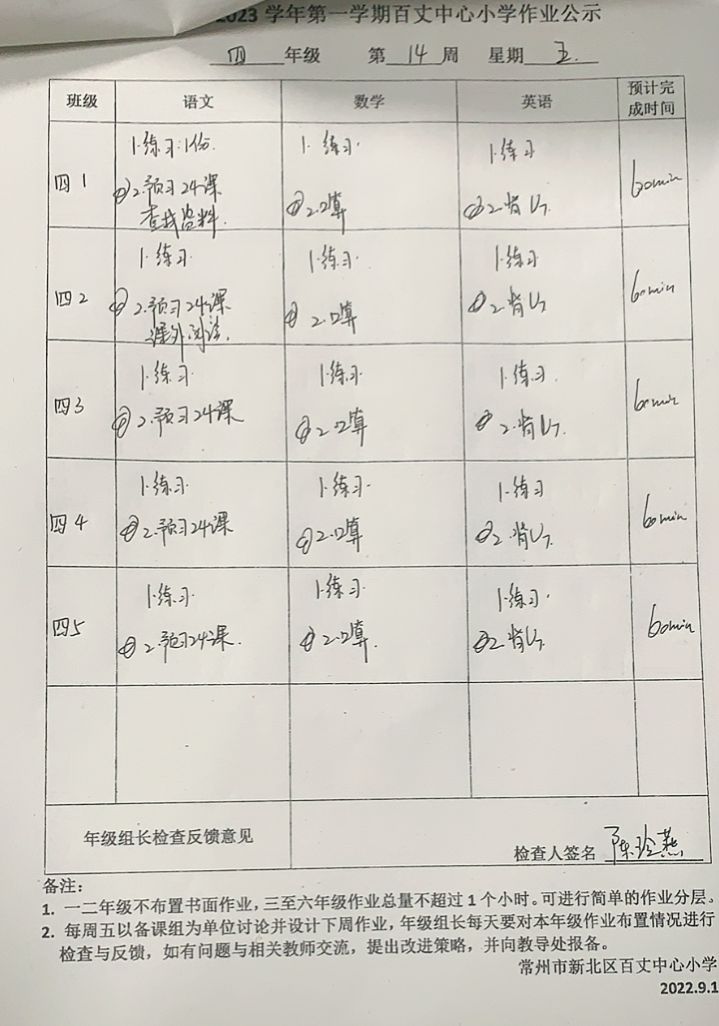 2023 学年第一学期百丈中心小学作业公示
四 年级 第 14 周 星期 五.
班级 语文 数学 英语 预计完成时间
四1 1.练习:1份. 1. 练习. 1.练习 60min
②2.预习24课 ②2.口算 ②2.背U7
查找资料.
四2 1.练习. 1.练习. 1.练习 60min
②2.预习24课 ②2.口算 ②2.背U7
课外阅读.
四3 1.练习. 1.练习. 1.练习. 60min
②2.预习24课 ②2.口算 ②2.背U7.
四4 1.练习. 1.练习. 1.练习 60min
②2.预习24课 ②2.口算 ②2.背U7.
四5 1.练习. 1.练习. 1.练习. 60min
②2.预习24课. ②2.口算. ②2.背U7.
年级组长检查反馈意见 检查人签名 陈玲燕
备注:
1. 一二年级不布置书面作业，三至六年级作业总量不超过 1 个小时。可进行简单的作业分层。
2. 每周五以备课组为单位讨论并设计下周作业，年级组长每天要对本年级作业布置情况进行
检查与反馈，如有问题与相关教师交流，提出改进策略，并向教导处报备。
常州市新北区百丈中心小学
2022.9.1